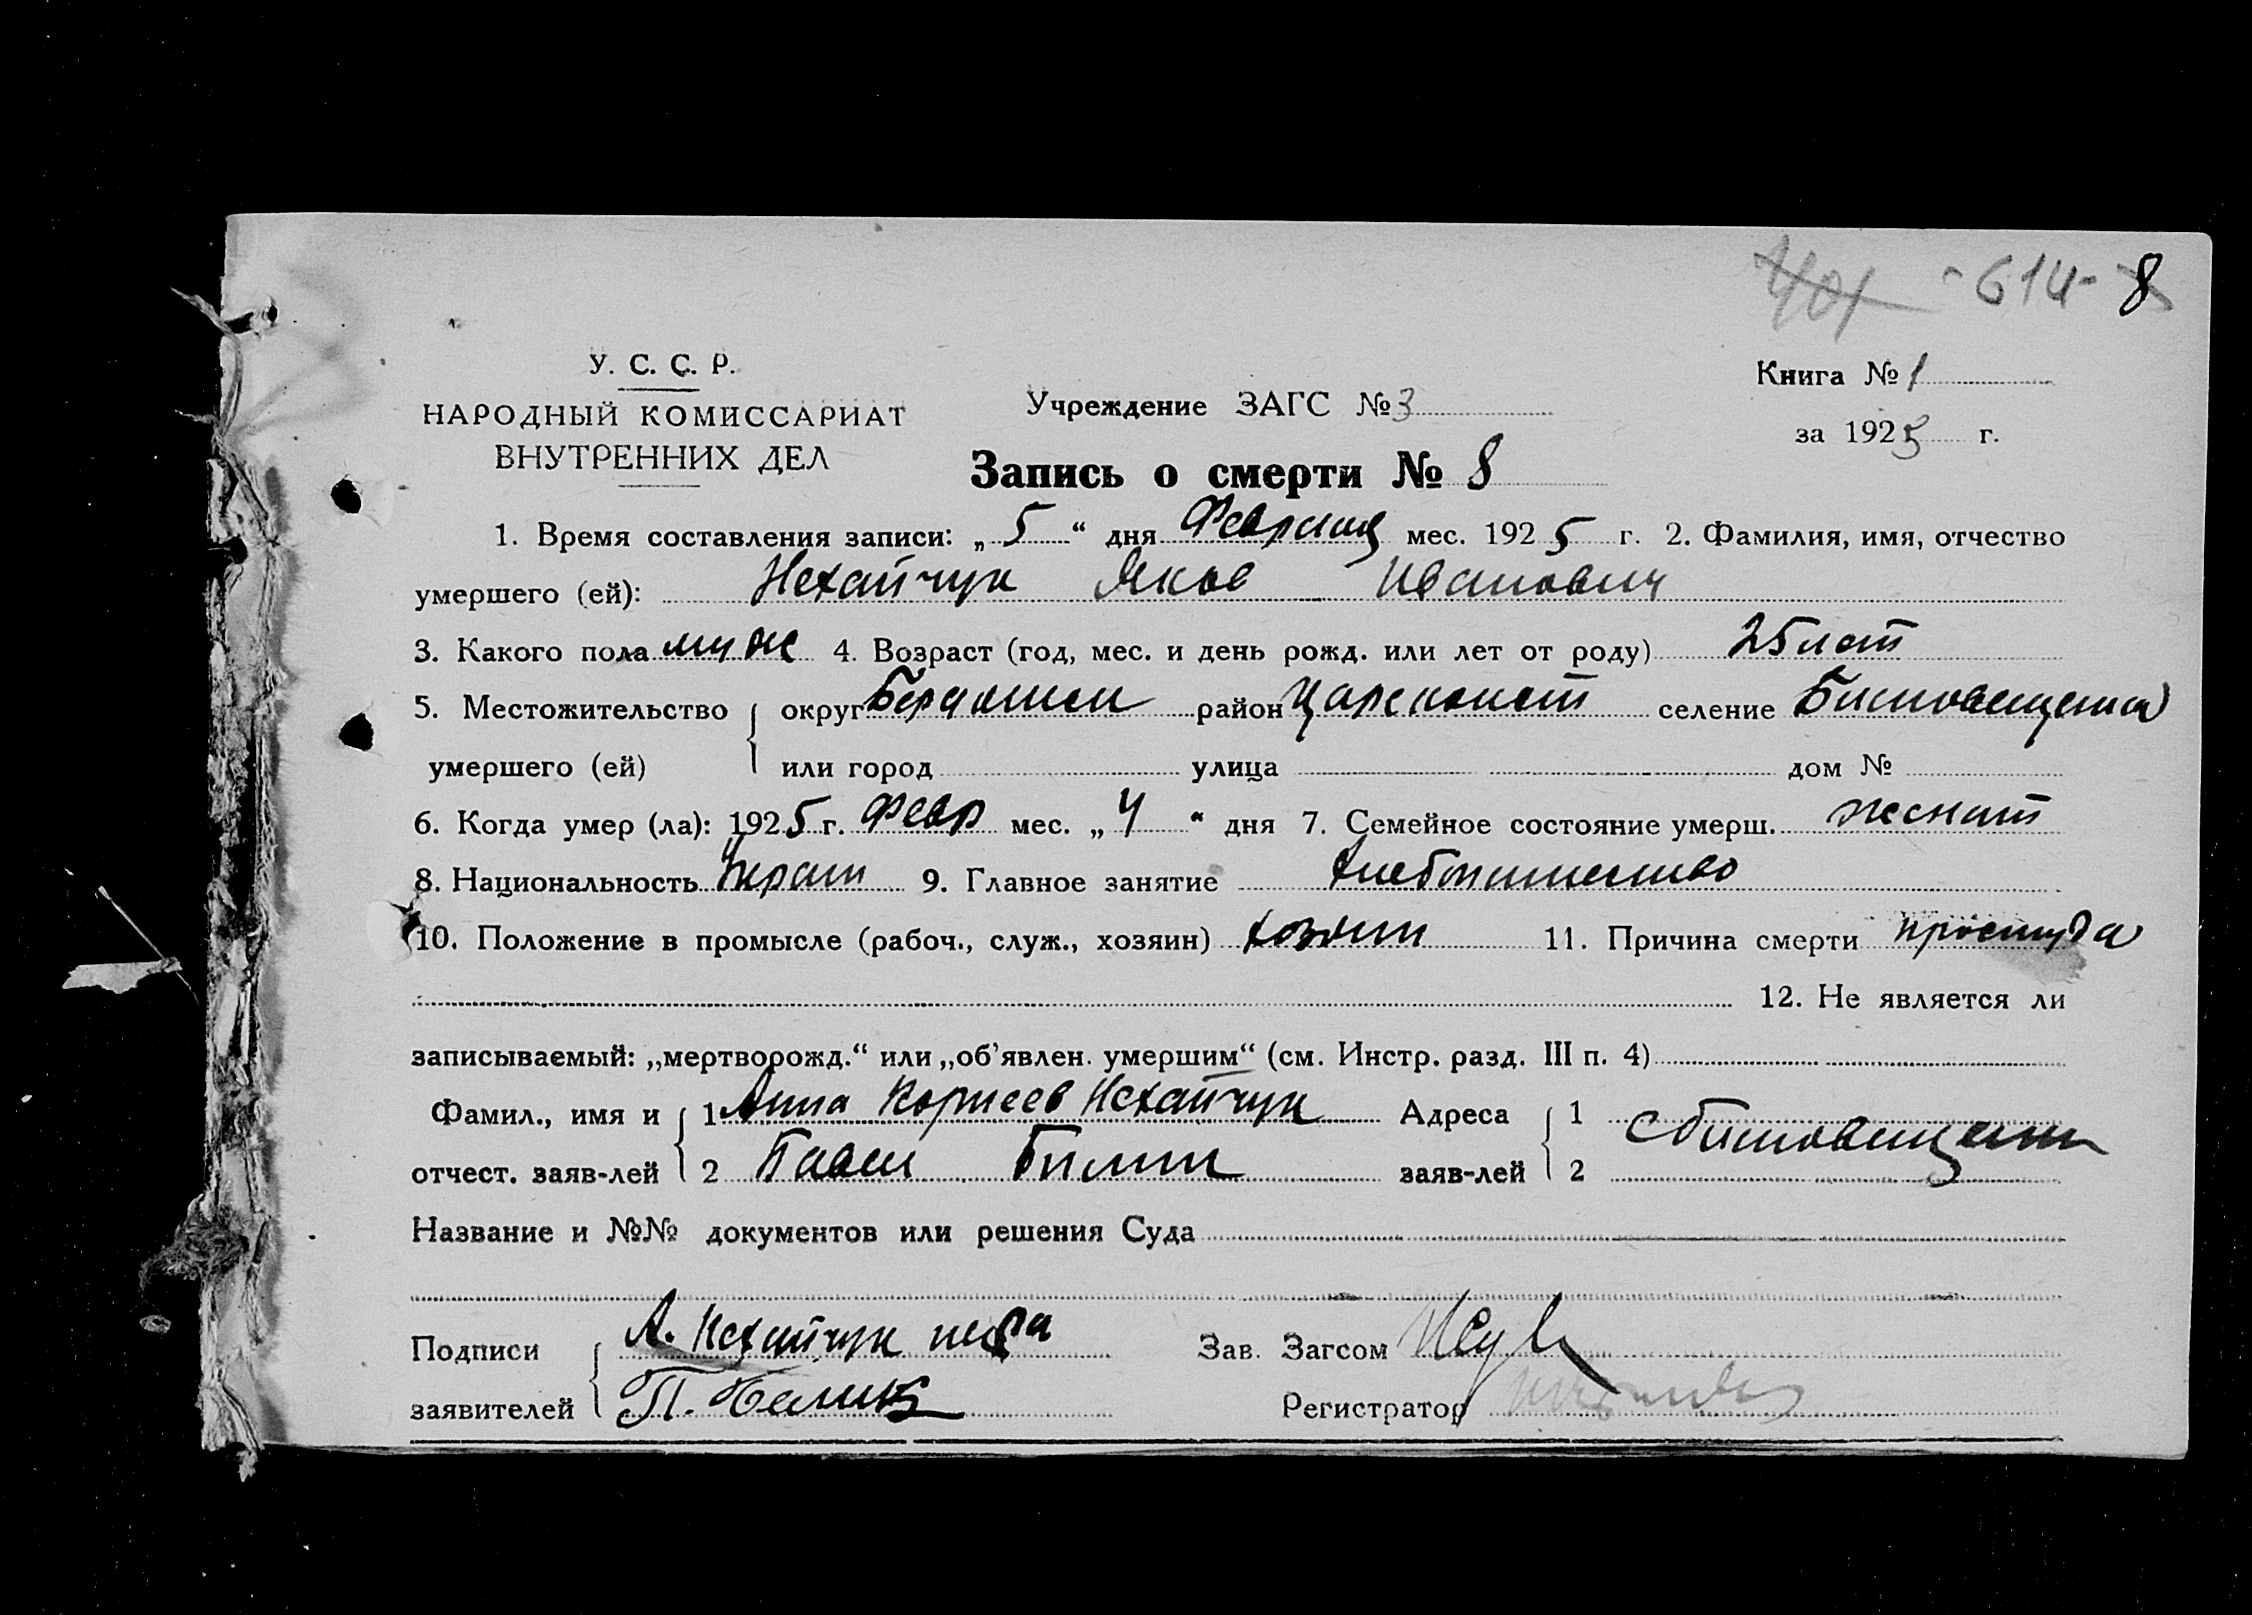 401 - 614 - 8
У. С. С. Р.
НАРОДНЫЙ КОМИССАРИАТ
ВНУТРЕННИХ ДЕЛ
Учреждение ЗАГС № 3
Книга № 1
за 1925 г.
Запись о смерти № 8
1. Время составления записи: „5“ дня Февраля мес. 1925 г. 2. Фамилия, имя, отчество
умершего (ей): Нехайчук Яков Иванович
3. Какого пола муж 4. Возраст (год, мес. и день рожд. или лет от роду) 25 лет
5. Местожительство округ район селение
умершего (ей) или город улица дом №
6. Когда умер (ла): 1925 г. Февр мес. „4“ дня 7. Семейное состояние умерш. женат
8. Национальность Украин 9. Главное занятие
10. Положение в промысле (рабоч., служ., хозяин) хозяин 11. Причина смерти простуда
12. Не является ли
записываемый: „мертворожд.“ или „об’явлен. умершим“ (см. Инстр. разд. III п. 4)
Фамил., имя и 1 Анна Корнеев Нехайчук Адреса 1
отчест. заяв-лей 2 заяв-лей 2
Название и №№ документов или решения Суда
Подписи А. Нехайчук Зав. Загсом
заявителей П. Регистратор